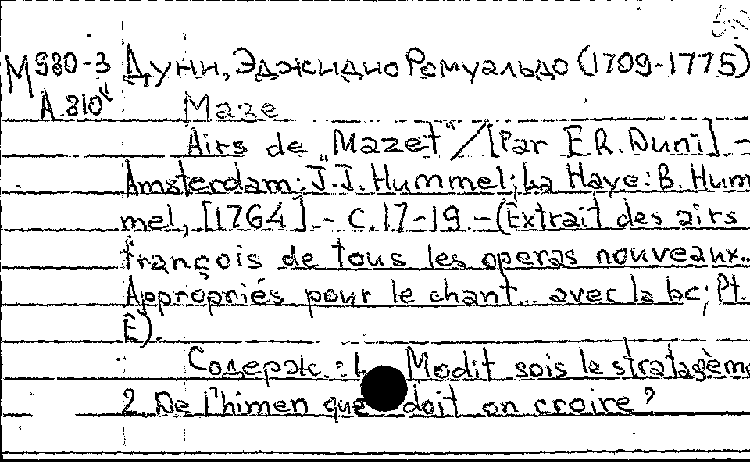 М 980-3 Дуни, Эджидио Ромуальдо (1709-1775)
А 310" Мазе
Airs de "Mazet" / [Par E.R. Duni] -
Amsterdam: J.J. Hummel; La Haye: B. Hum
mel, [1764] - C. 17-19 - (Extrait des airs
françois de tous les operas nouveaux..
Appropriés pour le chant.. avec la bc; Pt.
E).
Содерж.: 1. Modit sois le stratagème
2. De l'himen que doit on croire?